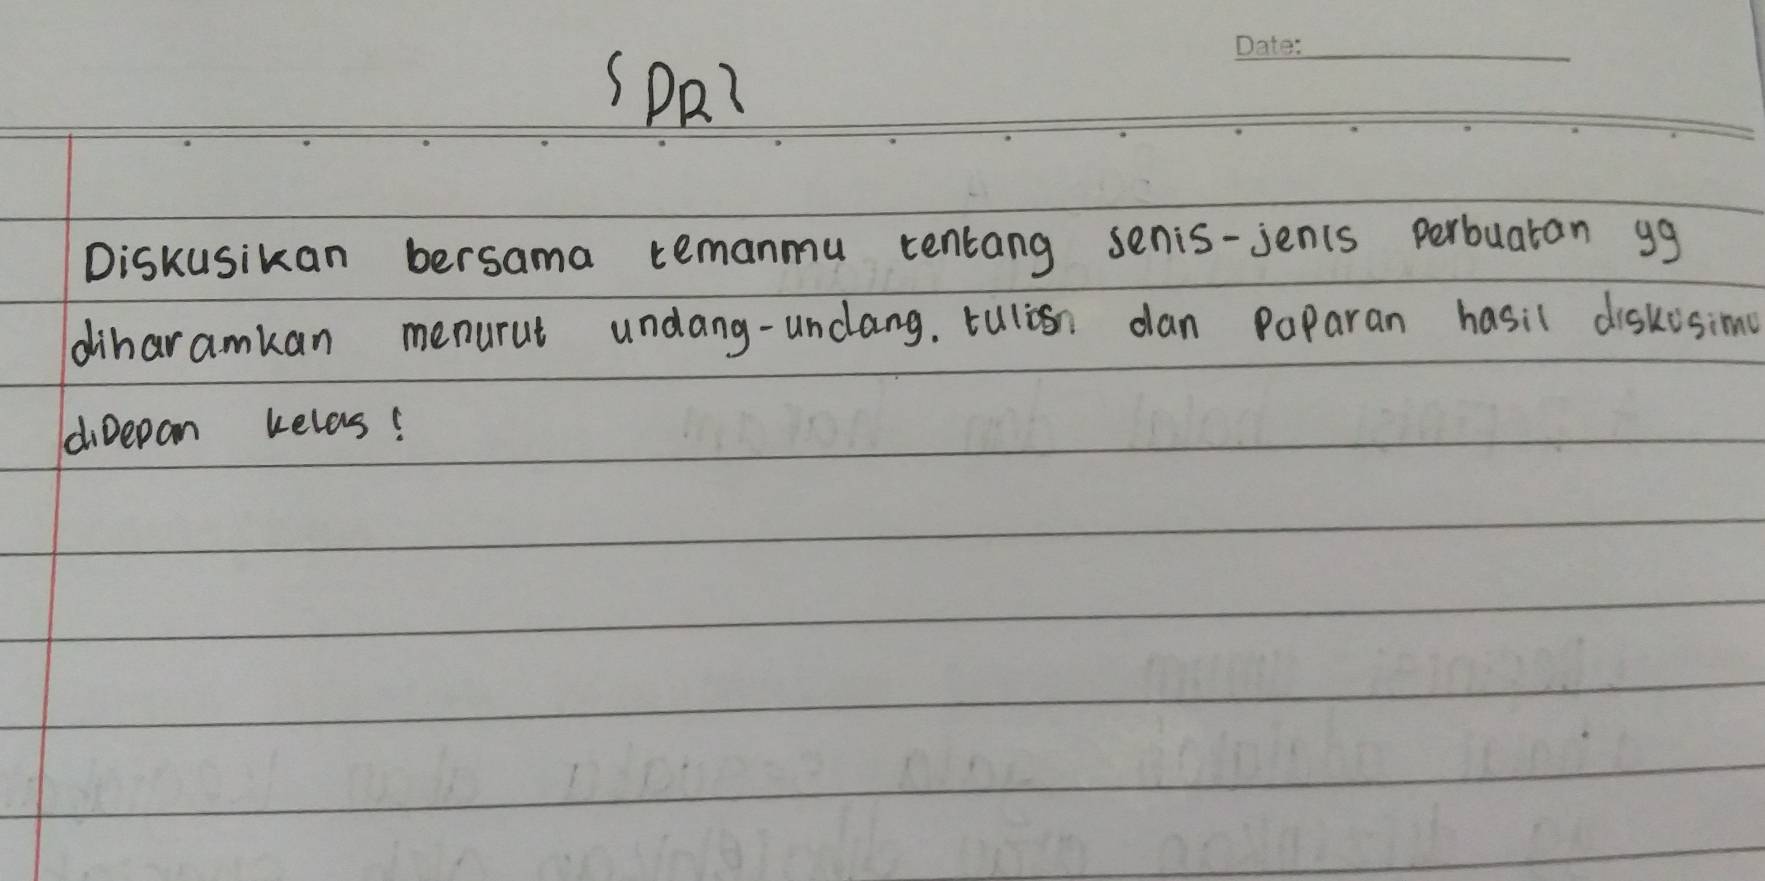 Date:
{ PR }
Diskusikan bersama temanmu tentang senis-jenis perbuatan yg
diharamkan menurut undang-undang. tulisn dan paparan hasil diskusimu
didepan kelas!